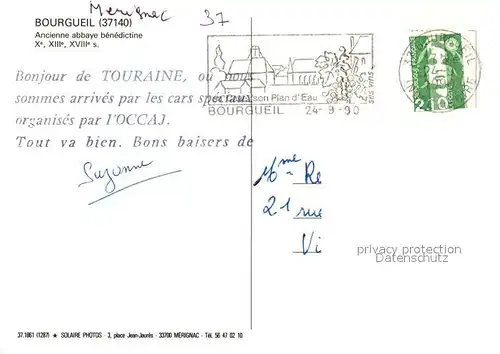 Merignac
37
BOURGUEIL (37140)
Ancienne abbaye bénédictine
Xe, XIIIe, XVIIIe s.
Bonjour de TOURAINE, où nous
sommes arrivés par les cars spéciaux
organisés par l'OCCAJ.
Tout va bien. Bons baisers de
Suzanne
son Plan d'Eau
BOURGUEIL 24-9-90
SES VINS
2,10
Mme Re
21 rue
Vi
privacy protection
Datenschutz
37.1861 (1287) ★ SOLAIRE PHOTOS - 3, place Jean-Jaurès - 33700 MÉRIGNAC - Tél. 56 47 02 10